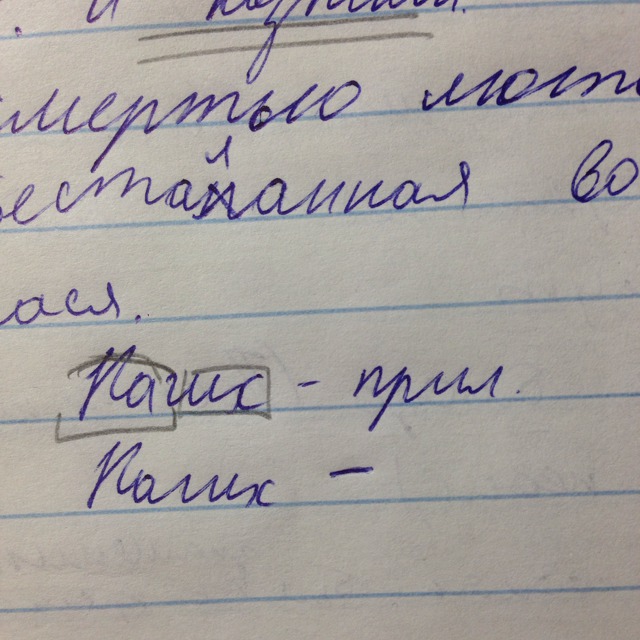 . и
смертью люто
л
бесталанная во
лася.
Нагих - прил.
Нагих -